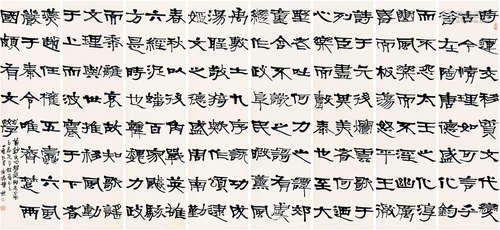 時運交移質文代變
古今情理如可言乎
昔在陶唐德盛化鈞
野老吐何力之談郊
童含不識之歌有虞
繼作政阜民暇薰風
詩于元后爛雲歌于
列臣盡其美者何乃
心樂而聲泰也至大
禹敷土九序詠功成
湯聖敬猗歟作頌逮
姬文之德盛周南勤
而不怨大王之化淳
邠風樂而不淫幽厲
昏而板蕩怒平王微
而黍離哀故知歌謠
文理與世推移風動
于上而波震于下者
春秋以後角戰英雄
六經泥蟠百家飆駭
方是時也韓魏力政
燕趙任權五蠹六蝨
嚴于秦令唯齊楚兩
國頗有文學